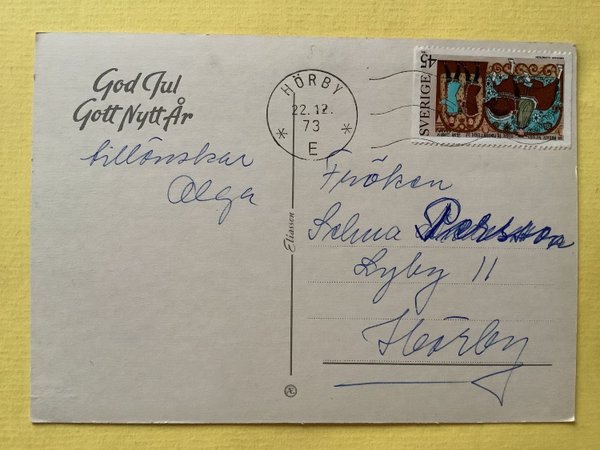 God Jul
Gott Nytt År
tillönskar
Olga
HÖRBY
22.12.
73
E
SVERIGE 45
Eliasson
Æ
Fröken
Selma Persson
Lyby 11
Hörby